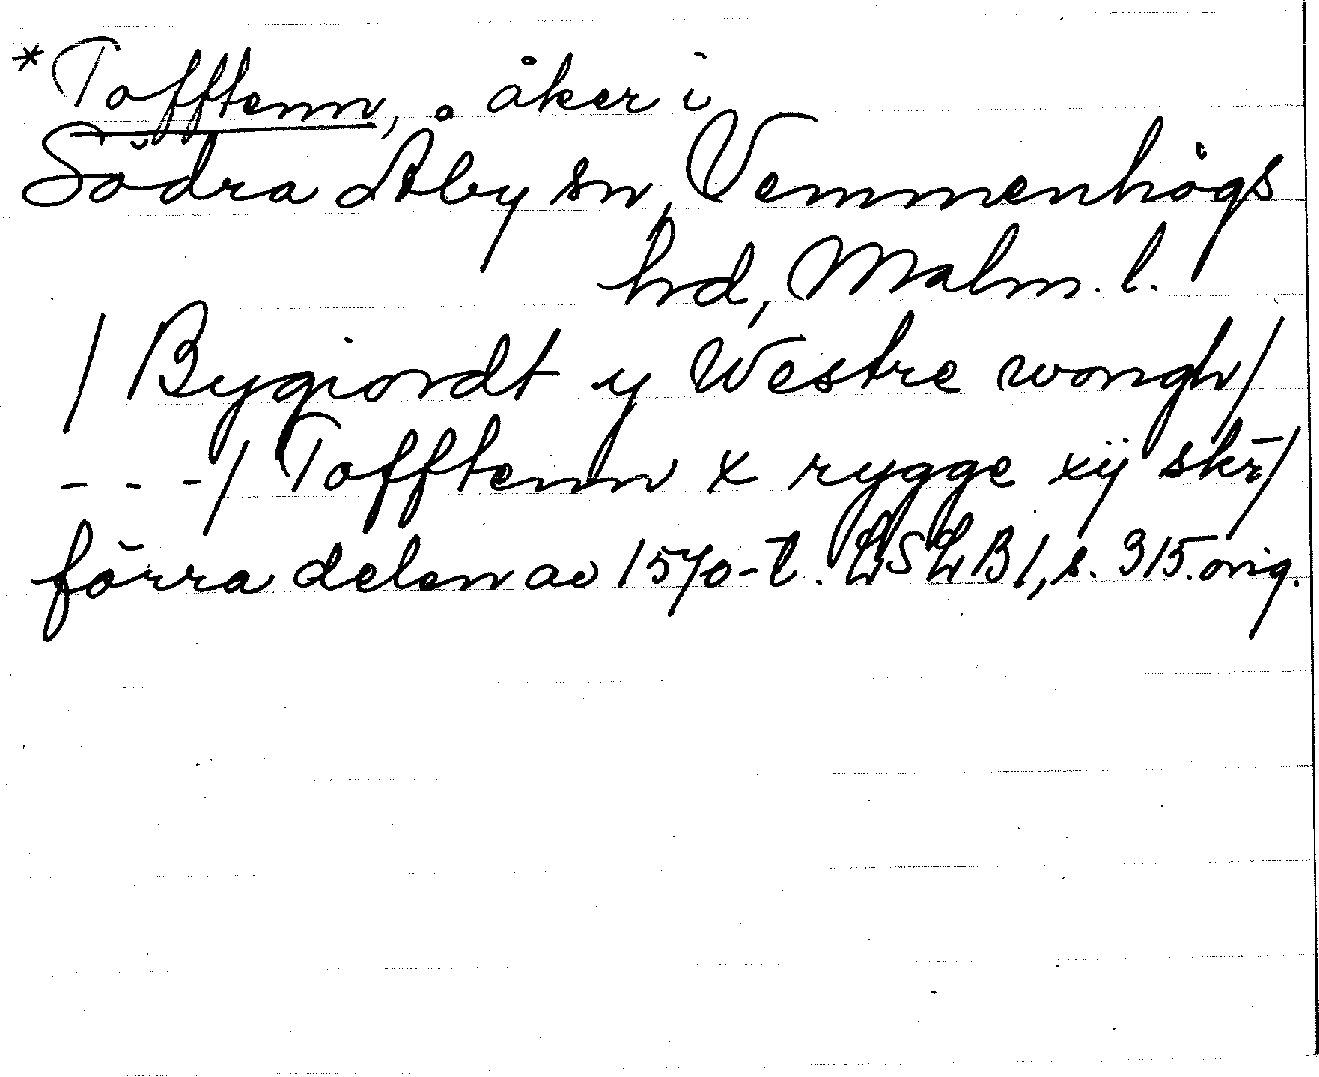 *Tofftenn, åker i
Södra Åby sn, Vemmenhögs
hd, Malm. l.
/ Bygiordt y Westre wongh/
- - -/ Tofftenn x rygge xij skr̄/
förra delen av 1570-t. LSLB1, s. 315.orig.